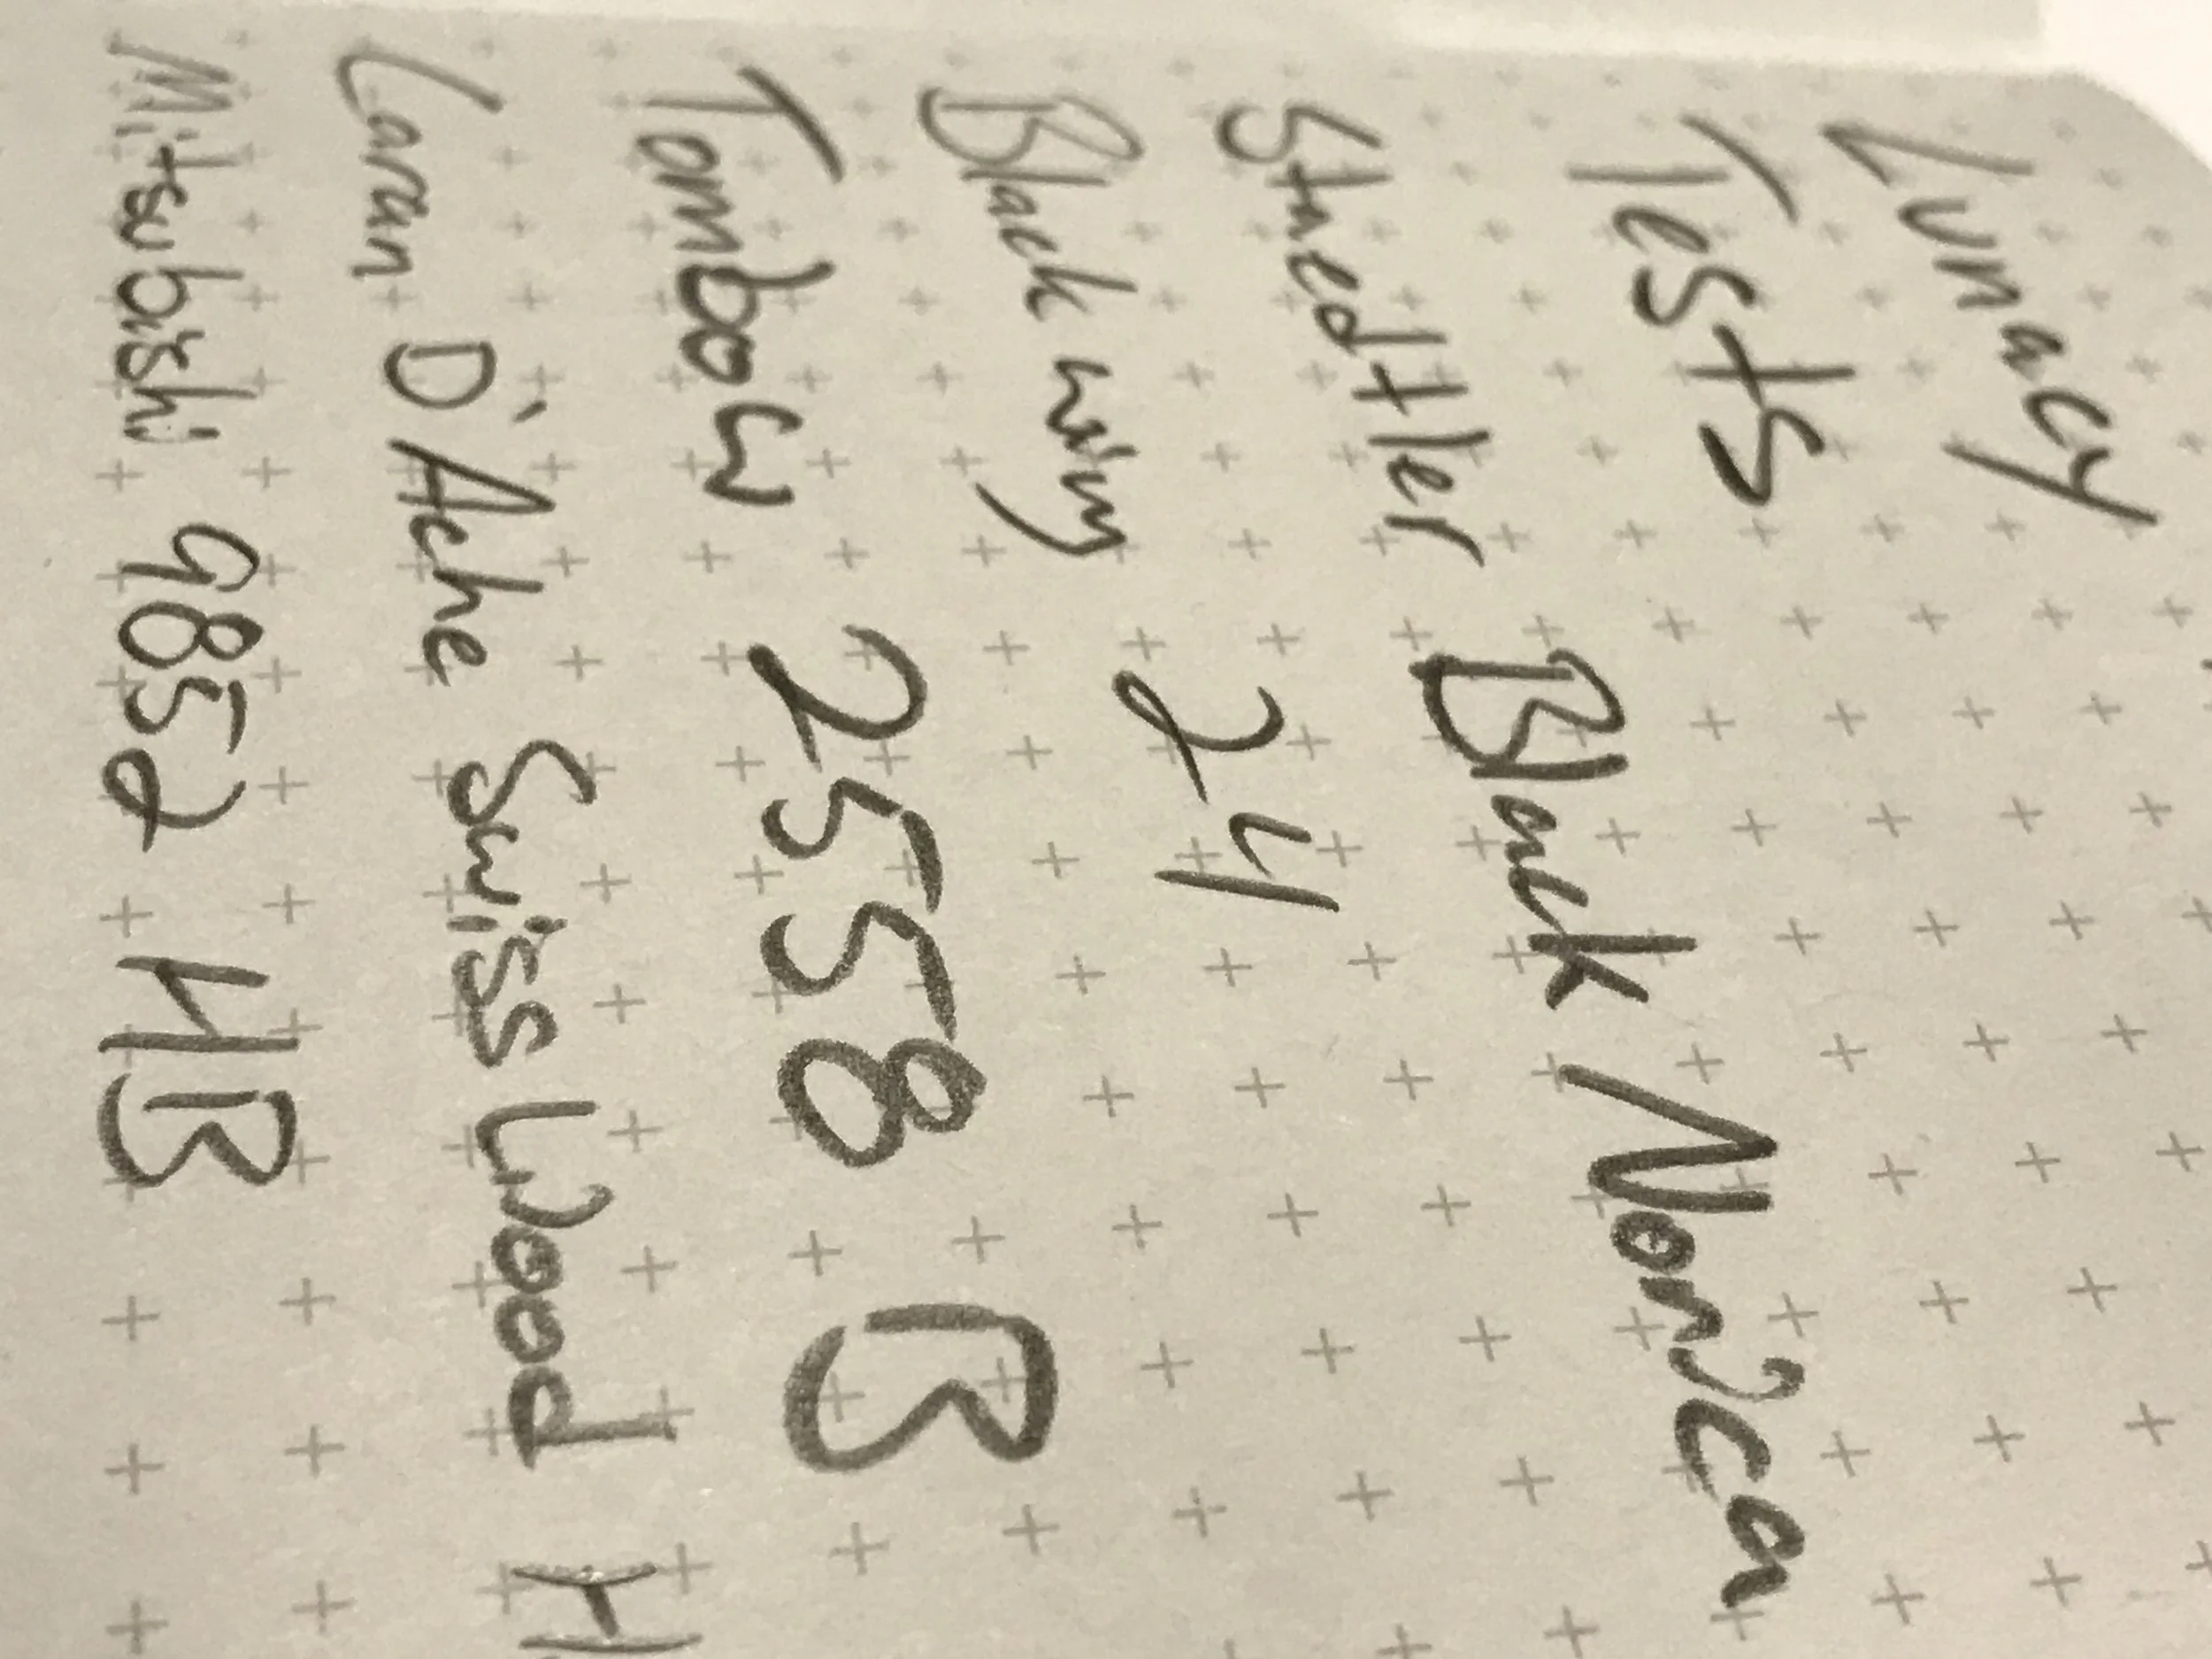 Lunacy
Tests
Staedtler Black Norica
Blackwing 24
Tombow 2558 B
Caran D'Ache Swiss Wood H
Mitsubishi 9852 HB